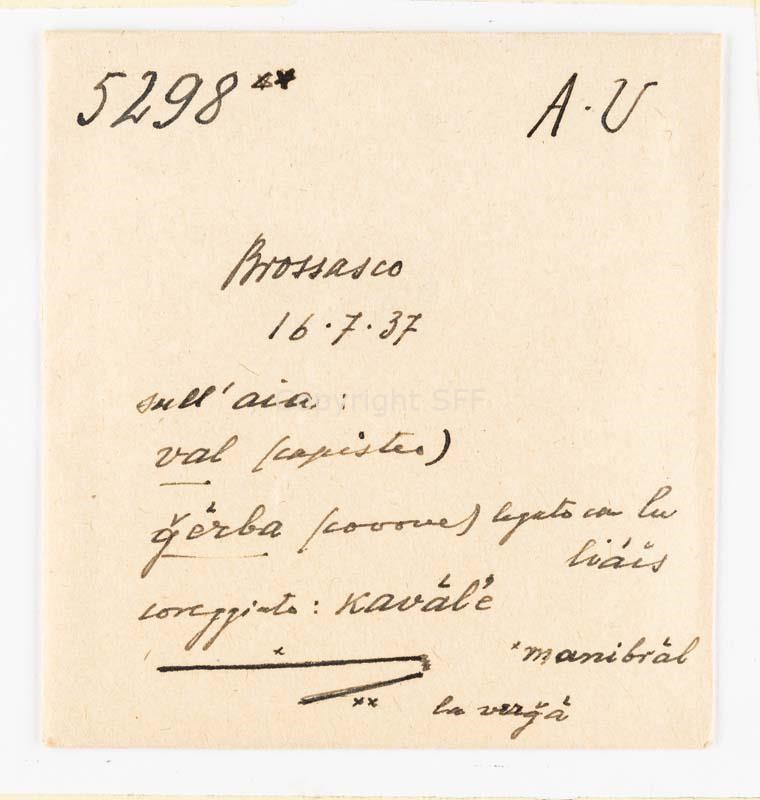 5298** A·V
Brossasco
16·7·37
sull'aia:
val (capisteo)
ǧèrba (covone) legato con lu
liáčs
coreggiato: kavàlė́
*
*manibràl
**
la verǧà
Copyright SFF